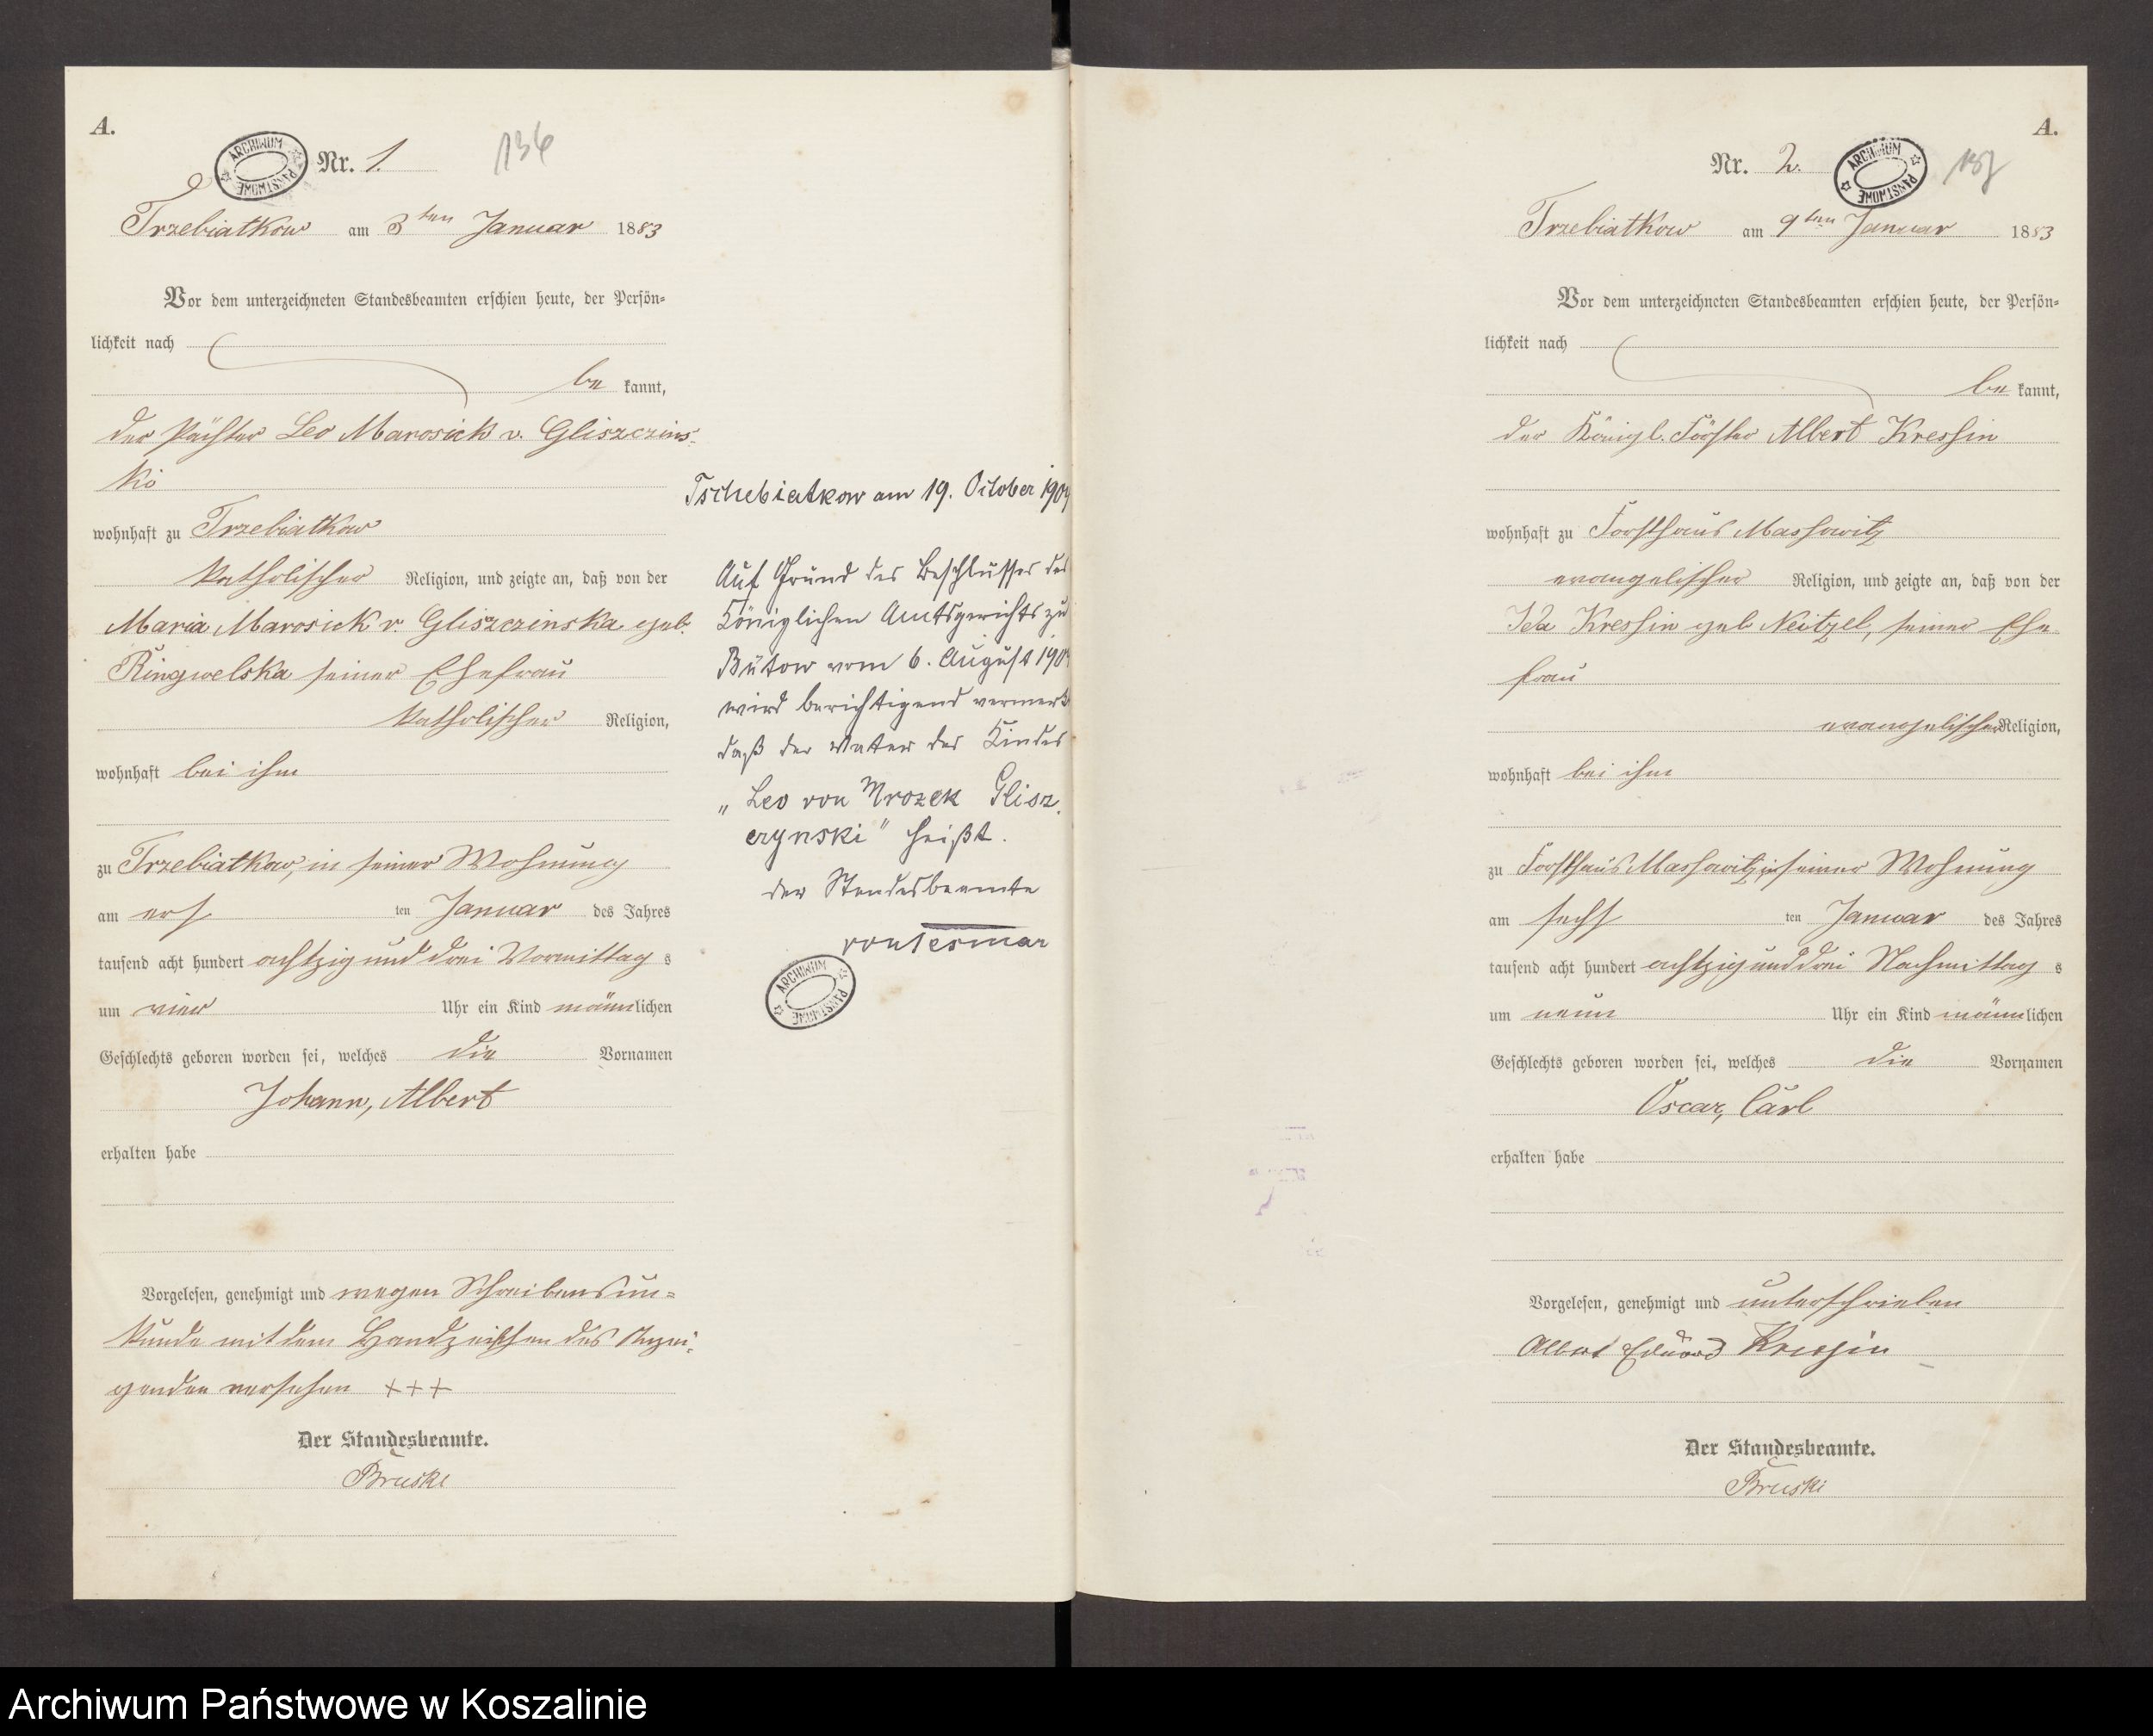 A.
ARCHIWUM PAŃSTWOWE
Nr. 1.
136
Trzebiatkow am 3ten Januar 1883
Vor dem unterzeichneten Standesbeamten erschien heute, der Persön=
lichkeit nach
be kannt,
der Pächter Leo Marosick v. Gliszczins-
ki
wohnhaft zu Trzebiatkow
katholischer Religion, und zeigte an, daß von der
Maria Marosick v. Gliszczinska geb.
Ringwelska seiner Ehefrau
katholischer Religion,
wohnhaft bei ihm
zu Trzebiatkow, in seiner Wohnung
am erst ten Januar des Jahres
tausend acht hundert achtzig und drei Vormittag s
um vier Uhr ein Kind männlichen
Geschlechts geboren worden sei, welches die Vornamen
Johann, Albert
erhalten habe
Vorgelesen, genehmigt und wegen Schreibensun=
kunde mit dem Handzeichen des Anzei-
genden versehen +++
Der Standesbeamte.
Bruski
Tschebiatkow am 19. October
Auf Grund des Beschlusses des
Königlichen Amtsgerichts zu
Bütow vom 6. August
wird berichtigend vermerkt
daß der Vater des Kindes
„Leo von Mrozek Glisz-
czynski" heißt.
Der Standesbeamte
von Tesmar
ARCHIWUM PAŃSTWOWE
A.
Nr. 2.
ARCHIWUM PAŃSTWOWE
Trzebiatkow am 9ten Januar 1883
Vor dem unterzeichneten Standesbeamten erschien heute, der Persön=
lichkeit nach
be kannt,
der Königl. Förster Albert Kressin
wohnhaft zu Forsthaus Massowitz
evangelischer Religion, und zeigte an, daß von der
Ida Kressin geb. Neitzel, seiner Ehe
frau
evangelischer Religion,
wohnhaft bei ihm
zu Forsthaus Massowitz, in seiner Wohnung
am sechs ten Januar des Jahres
tausend acht hundert achtzig und drei Nachmittag s
um neun Uhr ein Kind männlichen
Geschlechts geboren worden sei, welches die Vornamen
Oscar, Carl
erhalten habe
Vorgelesen, genehmigt und unterschrieben
Albert Eduard Kressin
Der Standesbeamte.
Bruski
Archiwum Państwowe w Koszalinie